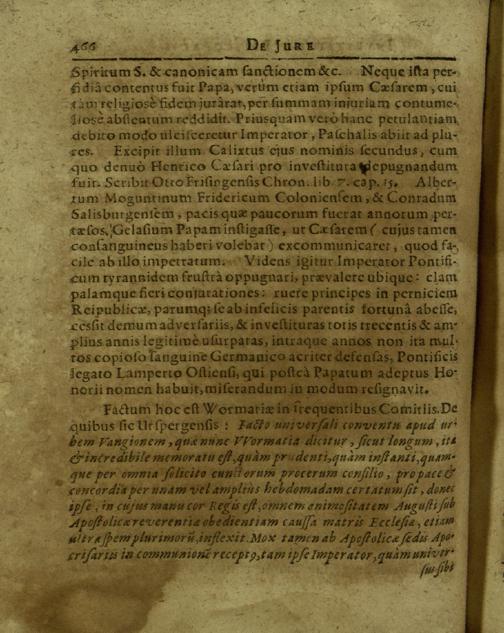 466 DE JURE
Spiritum S. & canonicam sanctionem &c. Neque ista per-
fidiâ contentus fuit Papa, verùm etiam ipsum Cæsarem, cui
tam religiosè fidem juràrat, per summam injuriam contume-
liosè absentem reddidit. Priusquam verò hanc petulantiam
debito modo ulcisceretur Imperator, Paschalis abiit ad plu-
res. Excipit illum Calixtus ejus nominis secundus, cum
quo denuò Henrico Cæsari pro investitura depugnandum
fuit. Scribit Otto Frisingensis Chron. lib. 7. cap. 15. Alber-
tum Moguntinum Fridericum Coloniensem, & Conradum
Salisburgensem, pacis quæ paucorum fuerat annorum per-
tæsos, Gelasium Papam instigasse, ut Cæsarem ( cujus tamen
consanguineus haberi volebat ) excommunicaret, quod fa-
cile ab illo impetratum. Videns igitur Imperator Pontifi-
cum tyrannidem frustrà oppugnari, prævalere ubique: clam
palamque fieri conjurationes: ruere principes in perniciem
Reipublicæ, parumq; se ab infelicis parentis fortunâ abesse,
cessit demum adversariis, & investituras totis trecentis & am-
plius annis legitimè usurpatas, intraque annos non ita mul-
tos copioso sanguine Germanico acriter defensas, Pontificis
legato Lamperto Ostiensi, qui posteà Papatum adeptus Ho-
norii nomen habuit, miserandum in modum resignavit.
Factum hoc est Wormatiæ in frequentibus Comitiis. De
quibus sic Urspergensis : Facto universali conventu apud ur-
bem Vangionem, quæ nunc VVormatia dicitur, sicut longum, ita
& incredibile memoratu est, quàm prudenti, quàm instanti, quam-
que per omnia solicito cunctorum procerum consilio, pro pace &
concordia per unam vel amplius hebdomadam certatum sit, donec
ipse, in cujus manu cor Regis est, omnem animositatem Augusti sub
Apostolicæ reverentiæ obedientiam caussa matris Ecclesiæ, etiam
ultra spem plurimorũ, inflexit. Mox tamen ab Apostolicæ sedis Apo-
crisariis in communionẽ receptq, tam ipse Imperator, quàm univer-
sus sibi